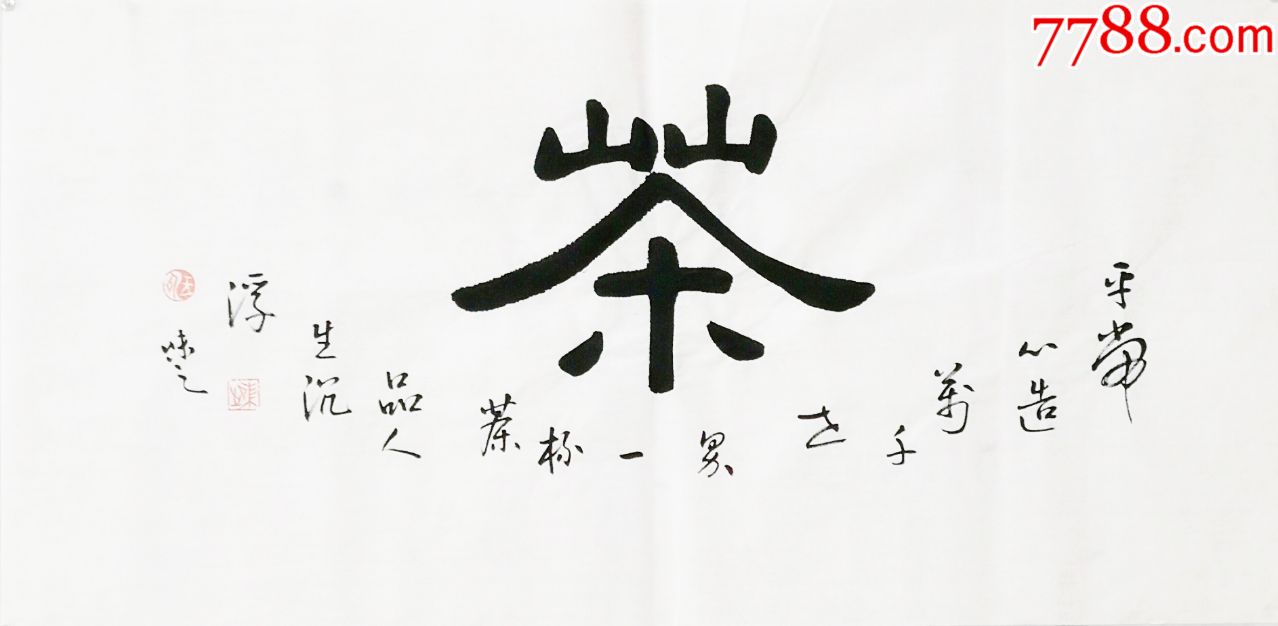 7788.com
茶
平常
心造
萬
千
世
界
一
杯
茶
品人
生沉
浮